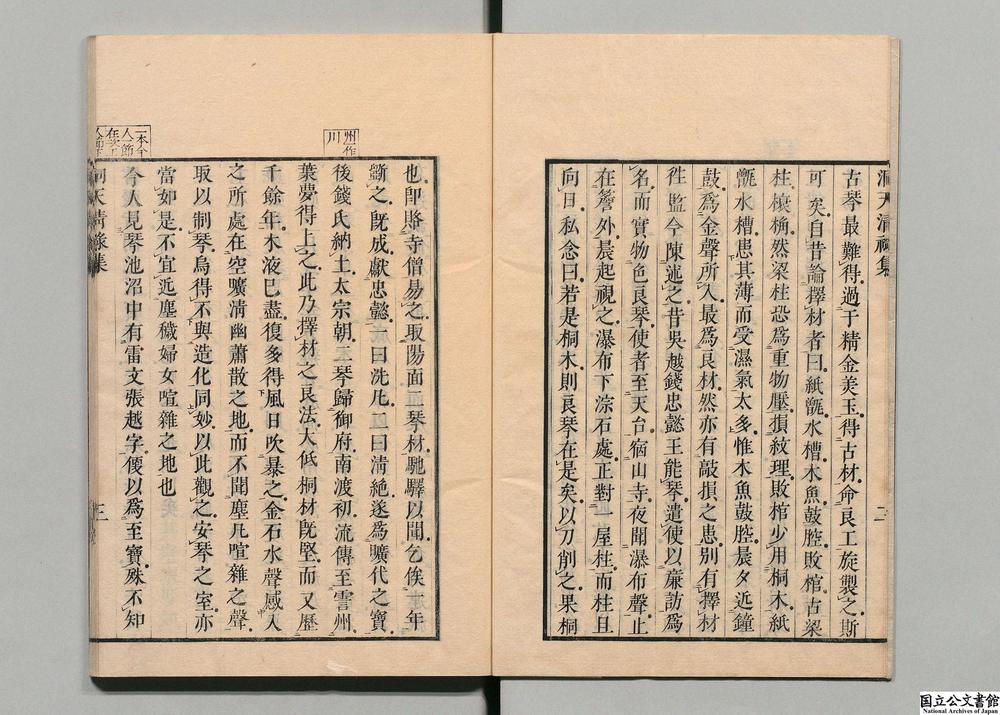 洞天清祿集
二
古琴最難得過于精金美玉得古材命良工旋製之斯
可矣自昔論擇材者曰紙甑水槽木魚鼓腔敗棺古梁
柱榱桷然梁柱恐爲重物壓損紋理敗棺少用桐木紙
甑水槽患其薄而受濕氣太多惟木魚鼓腔晨夕近鐘
鼓爲金聲所入最爲良材然亦有敲損之患別有擇材
徃監今陳述之昔吳越錢忠懿王能琴遣使以廉訪爲
名而實物色良琴使者至天台宿山寺夜聞瀑布聲止
在簷外晨起視之瀑布下淙石處正對一屋柱而柱且
向日私念曰若是桐木則良琴在是矣以刀削之果桐
也卽賂寺僧易之取陽面二琴材馳驛以聞乞俟一年
斵之旣成獻忠懿一曰洗凡二曰清絶遂爲曠代之寶
後錢氏納土太宗朝二琴歸御府南渡初流傳至霅州
葉夢得上之此乃擇材之良法大低桐材旣堅而又歷
千餘年木液已盡復多得風日吹暴之金石水聲感入
之所處在空曠清幽蕭散之地而不聞塵凡喧雜之聲
取以制琴烏得不與造化同妙以此觀之安琴之室亦
當如是不宜近塵穢婦女喧雜之地也
今人見琴池沼中有雷文張越字便以爲至寶殊不知
洞天清祿集
三
州作
川
一本今
人一節
國立公文書館
National Archives of Japan